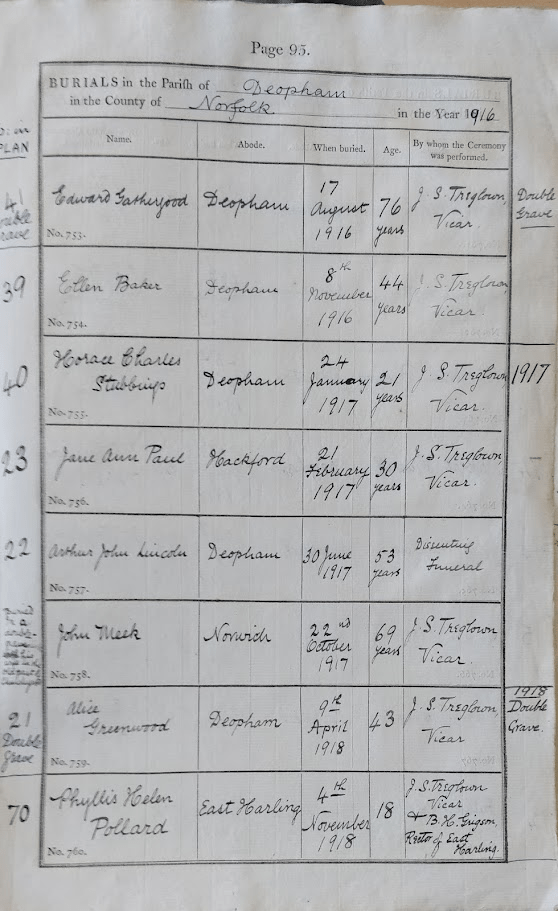 Page 95.
BURIALS in the Parish of Deopham
in the County of Norfolk in the Year 1916
in
PLAN
Name. Abode. When buried. Age. By whom the Ceremony was performed.
41
Double
Grave
Edward Gathergood
No. 753.
Deopham
17
August
1916
76
years
J. S. Treglown,
Vicar.
Double
Grave
39
Ellen Baker
No. 754.
Deopham
8th
November
1916
44
years
J. S. Treglown,
Vicar.
40
Horace Charles
Stubbings
No. 755.
Deopham
24
January
1917
21
years
J. S. Treglown
Vicar.
1917
23
Jane Ann Paul
No. 756.
Hackford
21
February
1917
30
years
J. S. Treglown,
Vicar.
22
Arthur John Lincoln
No. 757.
Deopham
30 June
1917
53
years
Dissenting
Funeral
buried
in a
John Meek
No. 758.
Norwich
22nd
October
1917
69
years
J. S. Treglown
Vicar.
21
Double
Grave
Alice
Greenwood
No. 759.
Deopham
9th
April
1918
43
J. S. Treglown,
Vicar
1918
Double
Grave.
70
Phyllis Helen
Pollard
No. 760.
East Harling
4th
November
1918
18
J. S. Treglown
Vicar
& B. H. Grigson,
Rector of East
Harling.